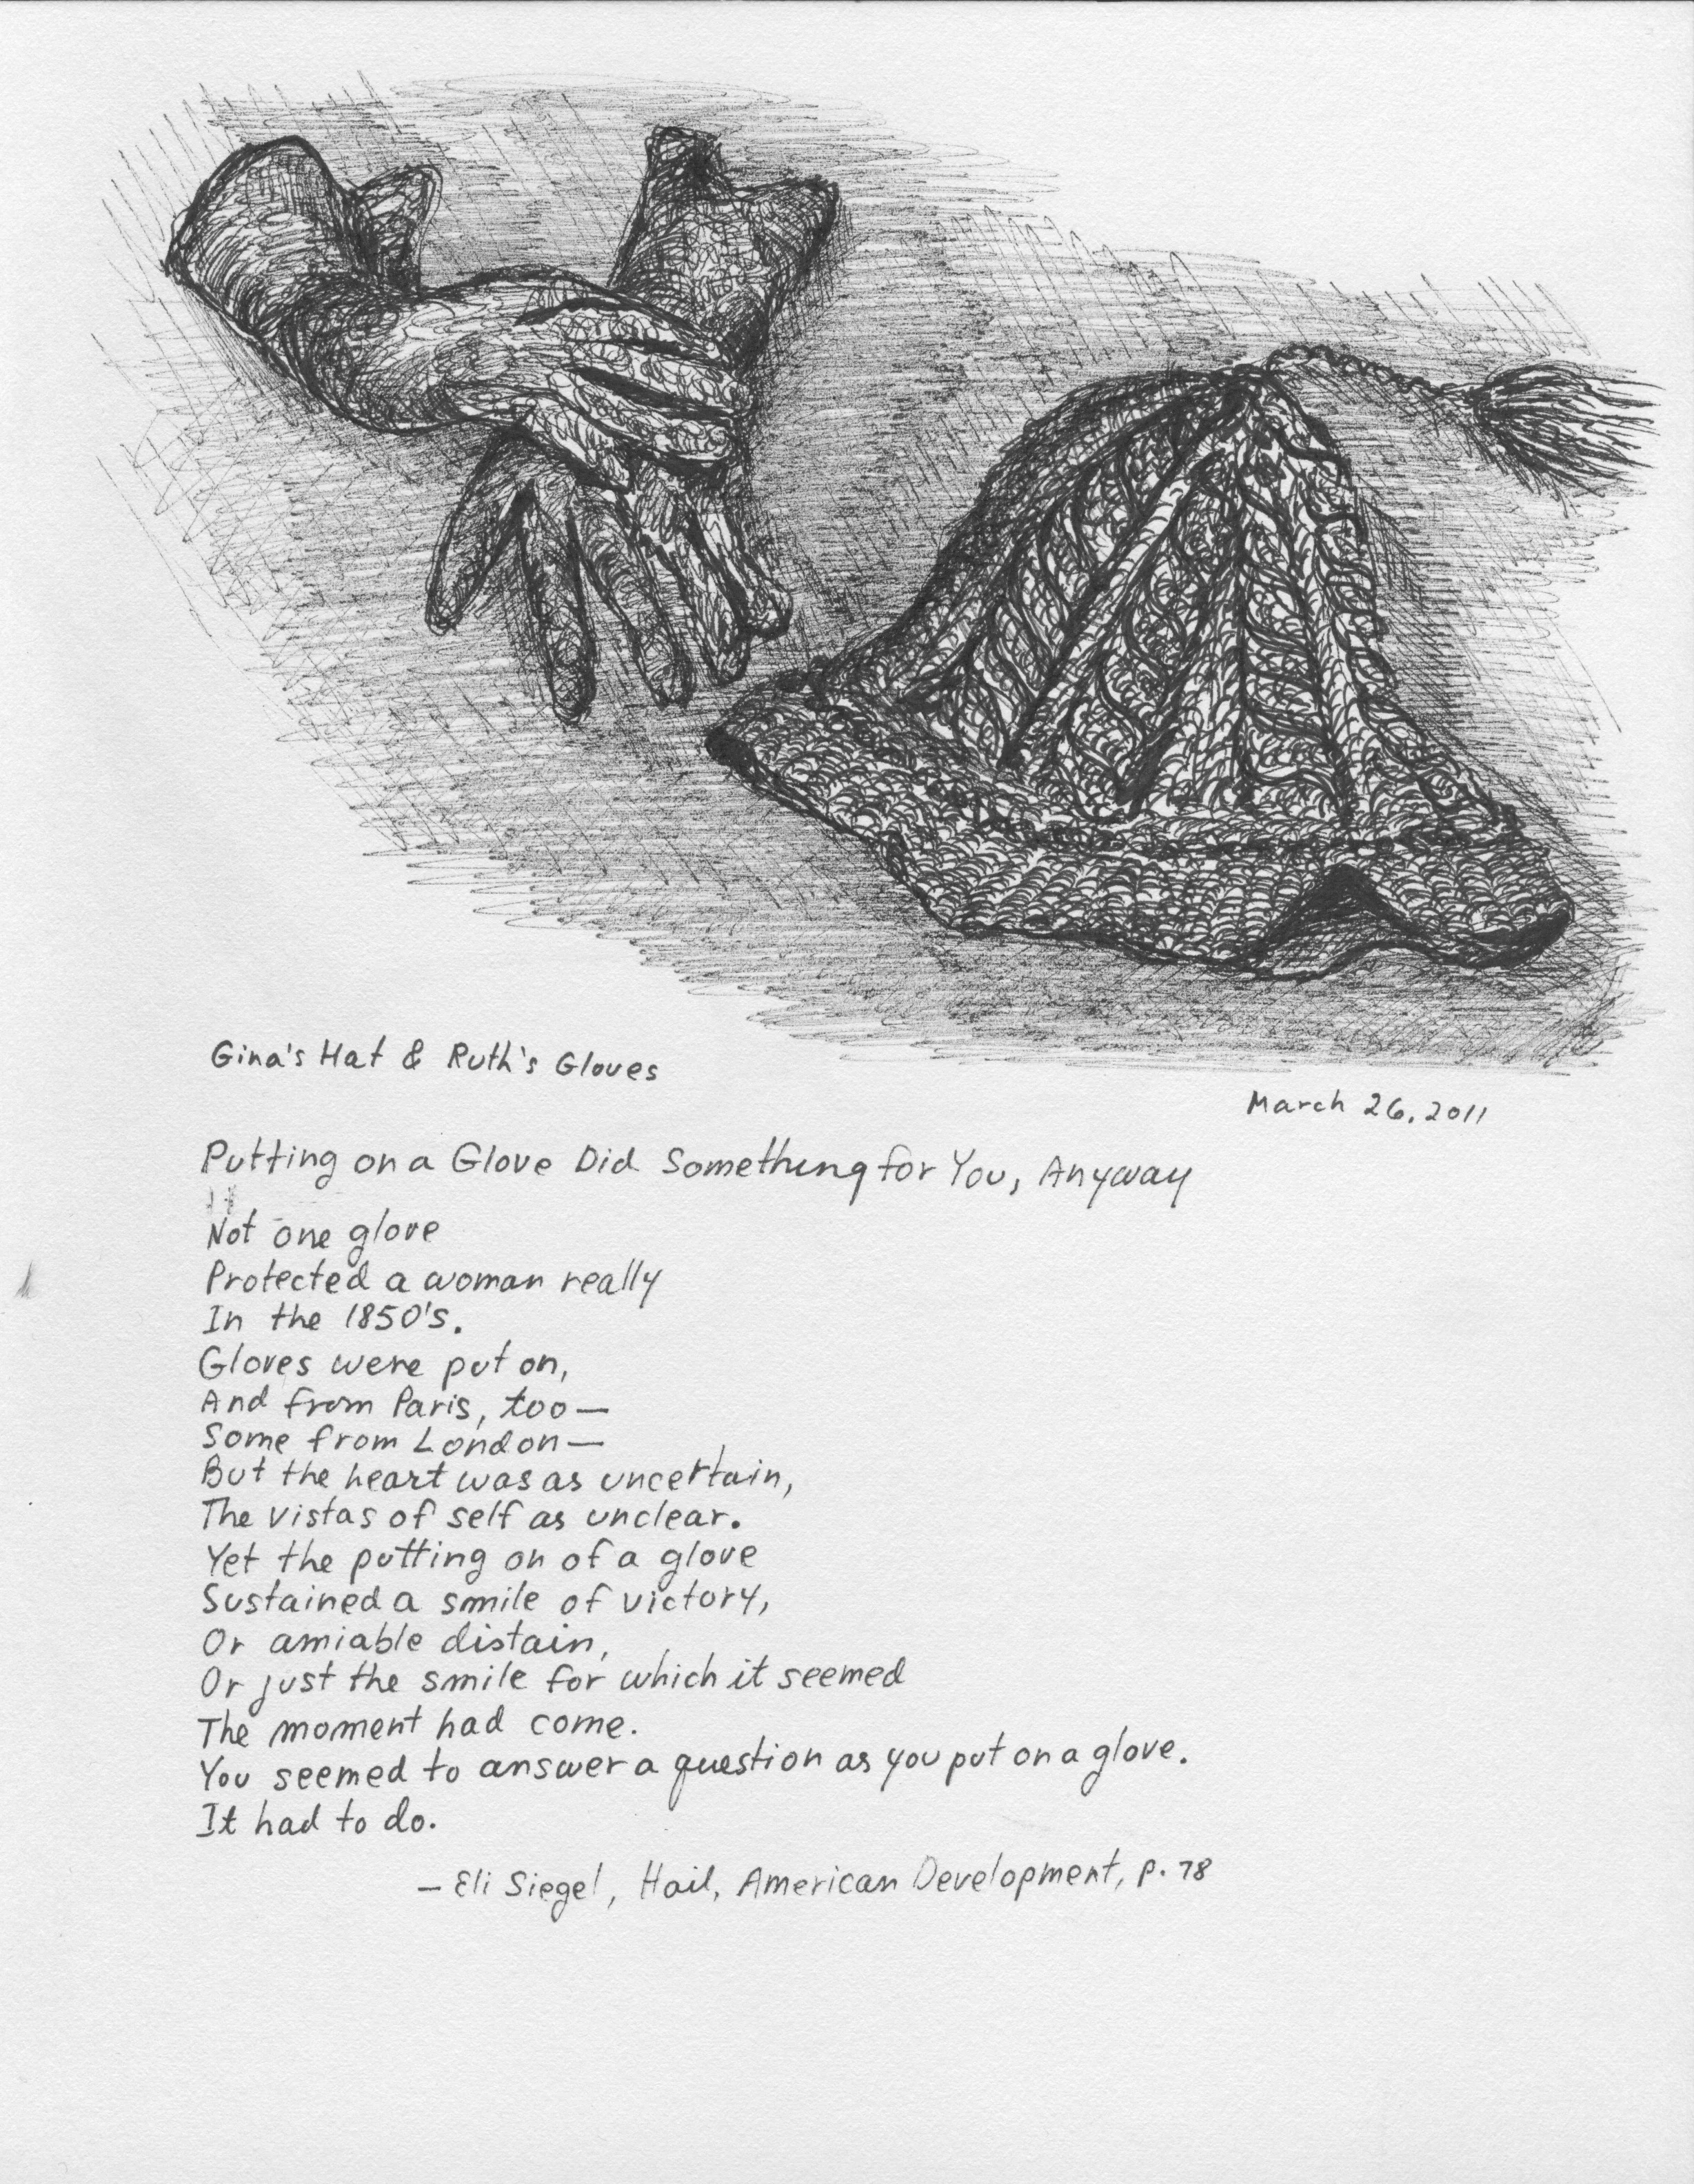 Gina's Hat & Ruth's Gloves
March 26, 2011
Putting on a Glove Did Something for You, Anyway
Not one glove
Protected a woman really
In the 1850's.
Gloves were put on,
And from Paris, too—
Some from London—
But the heart was as uncertain,
The vistas of self as unclear.
Yet the putting on of a glove
Sustained a smile of victory,
Or amiable distain,
Or just the smile for which it seemed
The moment had come.
You seemed to answer a question as you put on a glove.
It had to do.
— Eli Siegel, Hail, American Development, p. 78